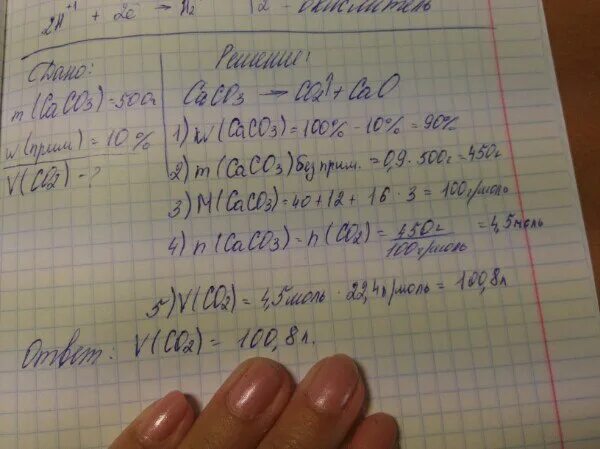 2H⁺¹ + 2ē → H₂ | 2 - окислитель
Дано:
m(CaCO₃) = 500г
w(прим) = 10%
V(CO₂) - ?
Решение:
CaCO₃ → CO₂↑ + CaO
1) w(CaCO₃) = 100% - 10% = 90%
2) m(CaCO₃) без прим. = 0,9 · 500г = 450г
3) M(CaCO₃) = 40 + 12 + 16 · 3 = 100г/моль
4) n(CaCO₃) = n(CO₂) = 450г / 100г/моль = 4,5моль
5) V(CO₂) = 4,5моль · 22,4л/моль = 100,8л
Ответ: V(CO₂) = 100,8л.